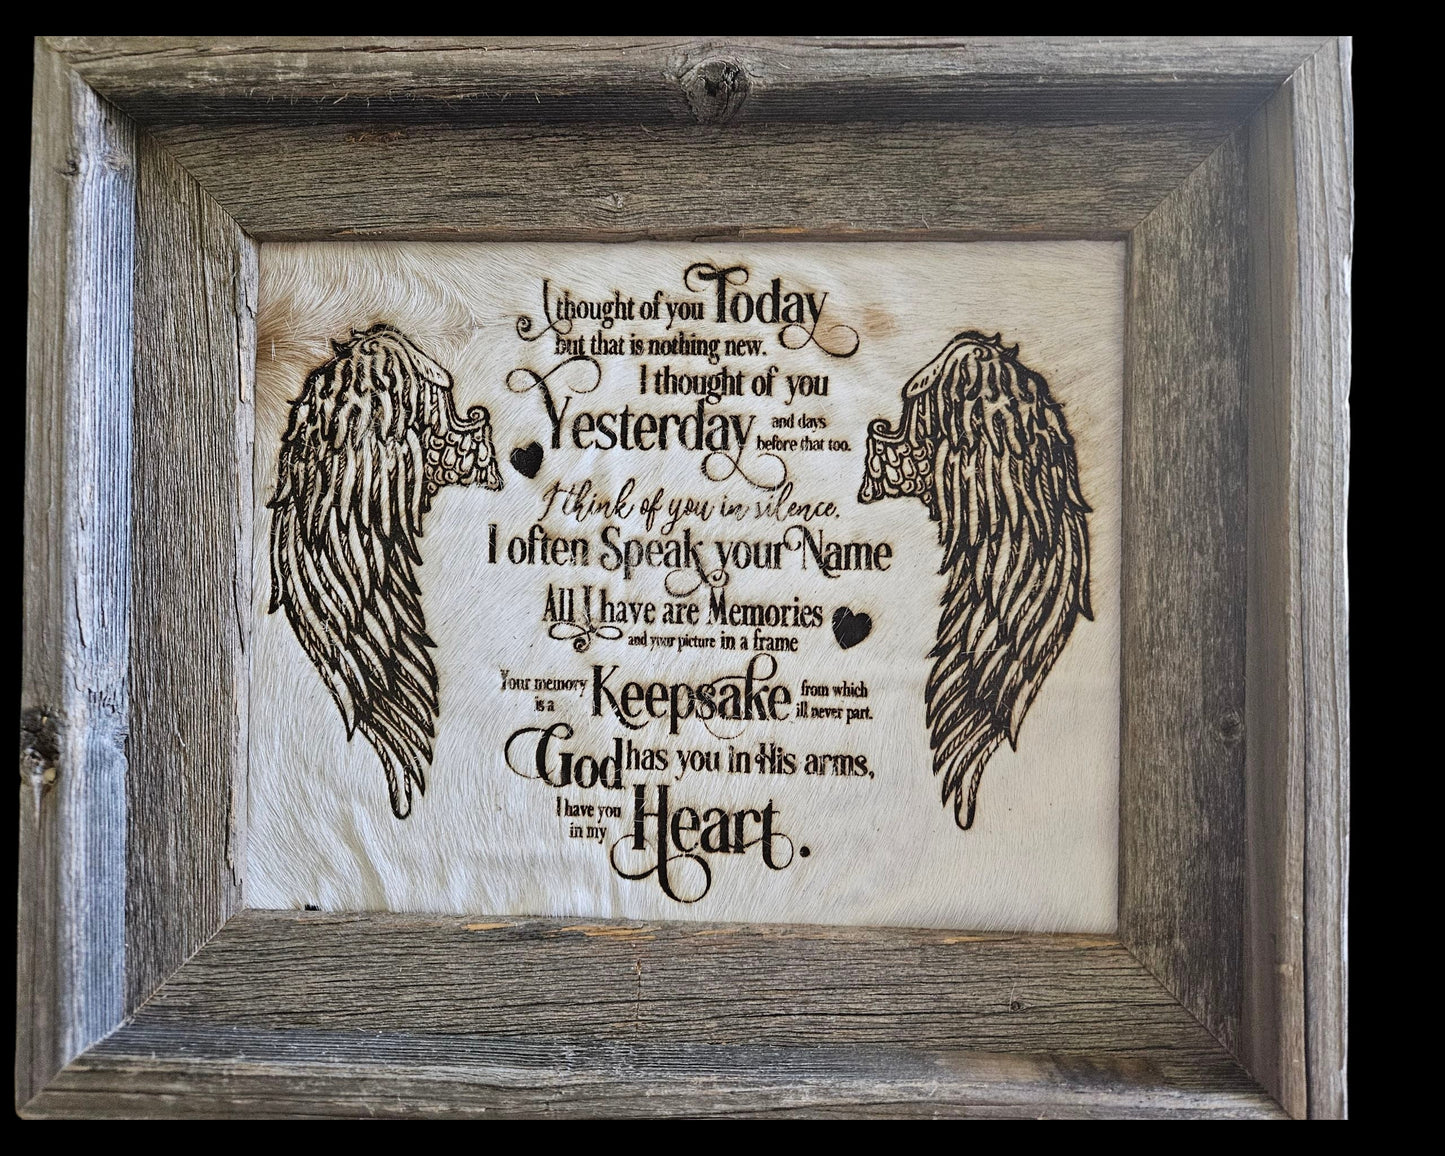 I thought of you Today
but that is nothing new.
I thought of you
Yesterday and days
before that too.
I think of you in silence.
I often Speak your Name
All I have are Memories
and your picture in a frame
Your memory
is a
Keepsake
from which
ill never part.
God has you in His arms,
I have you
in my
Heart.